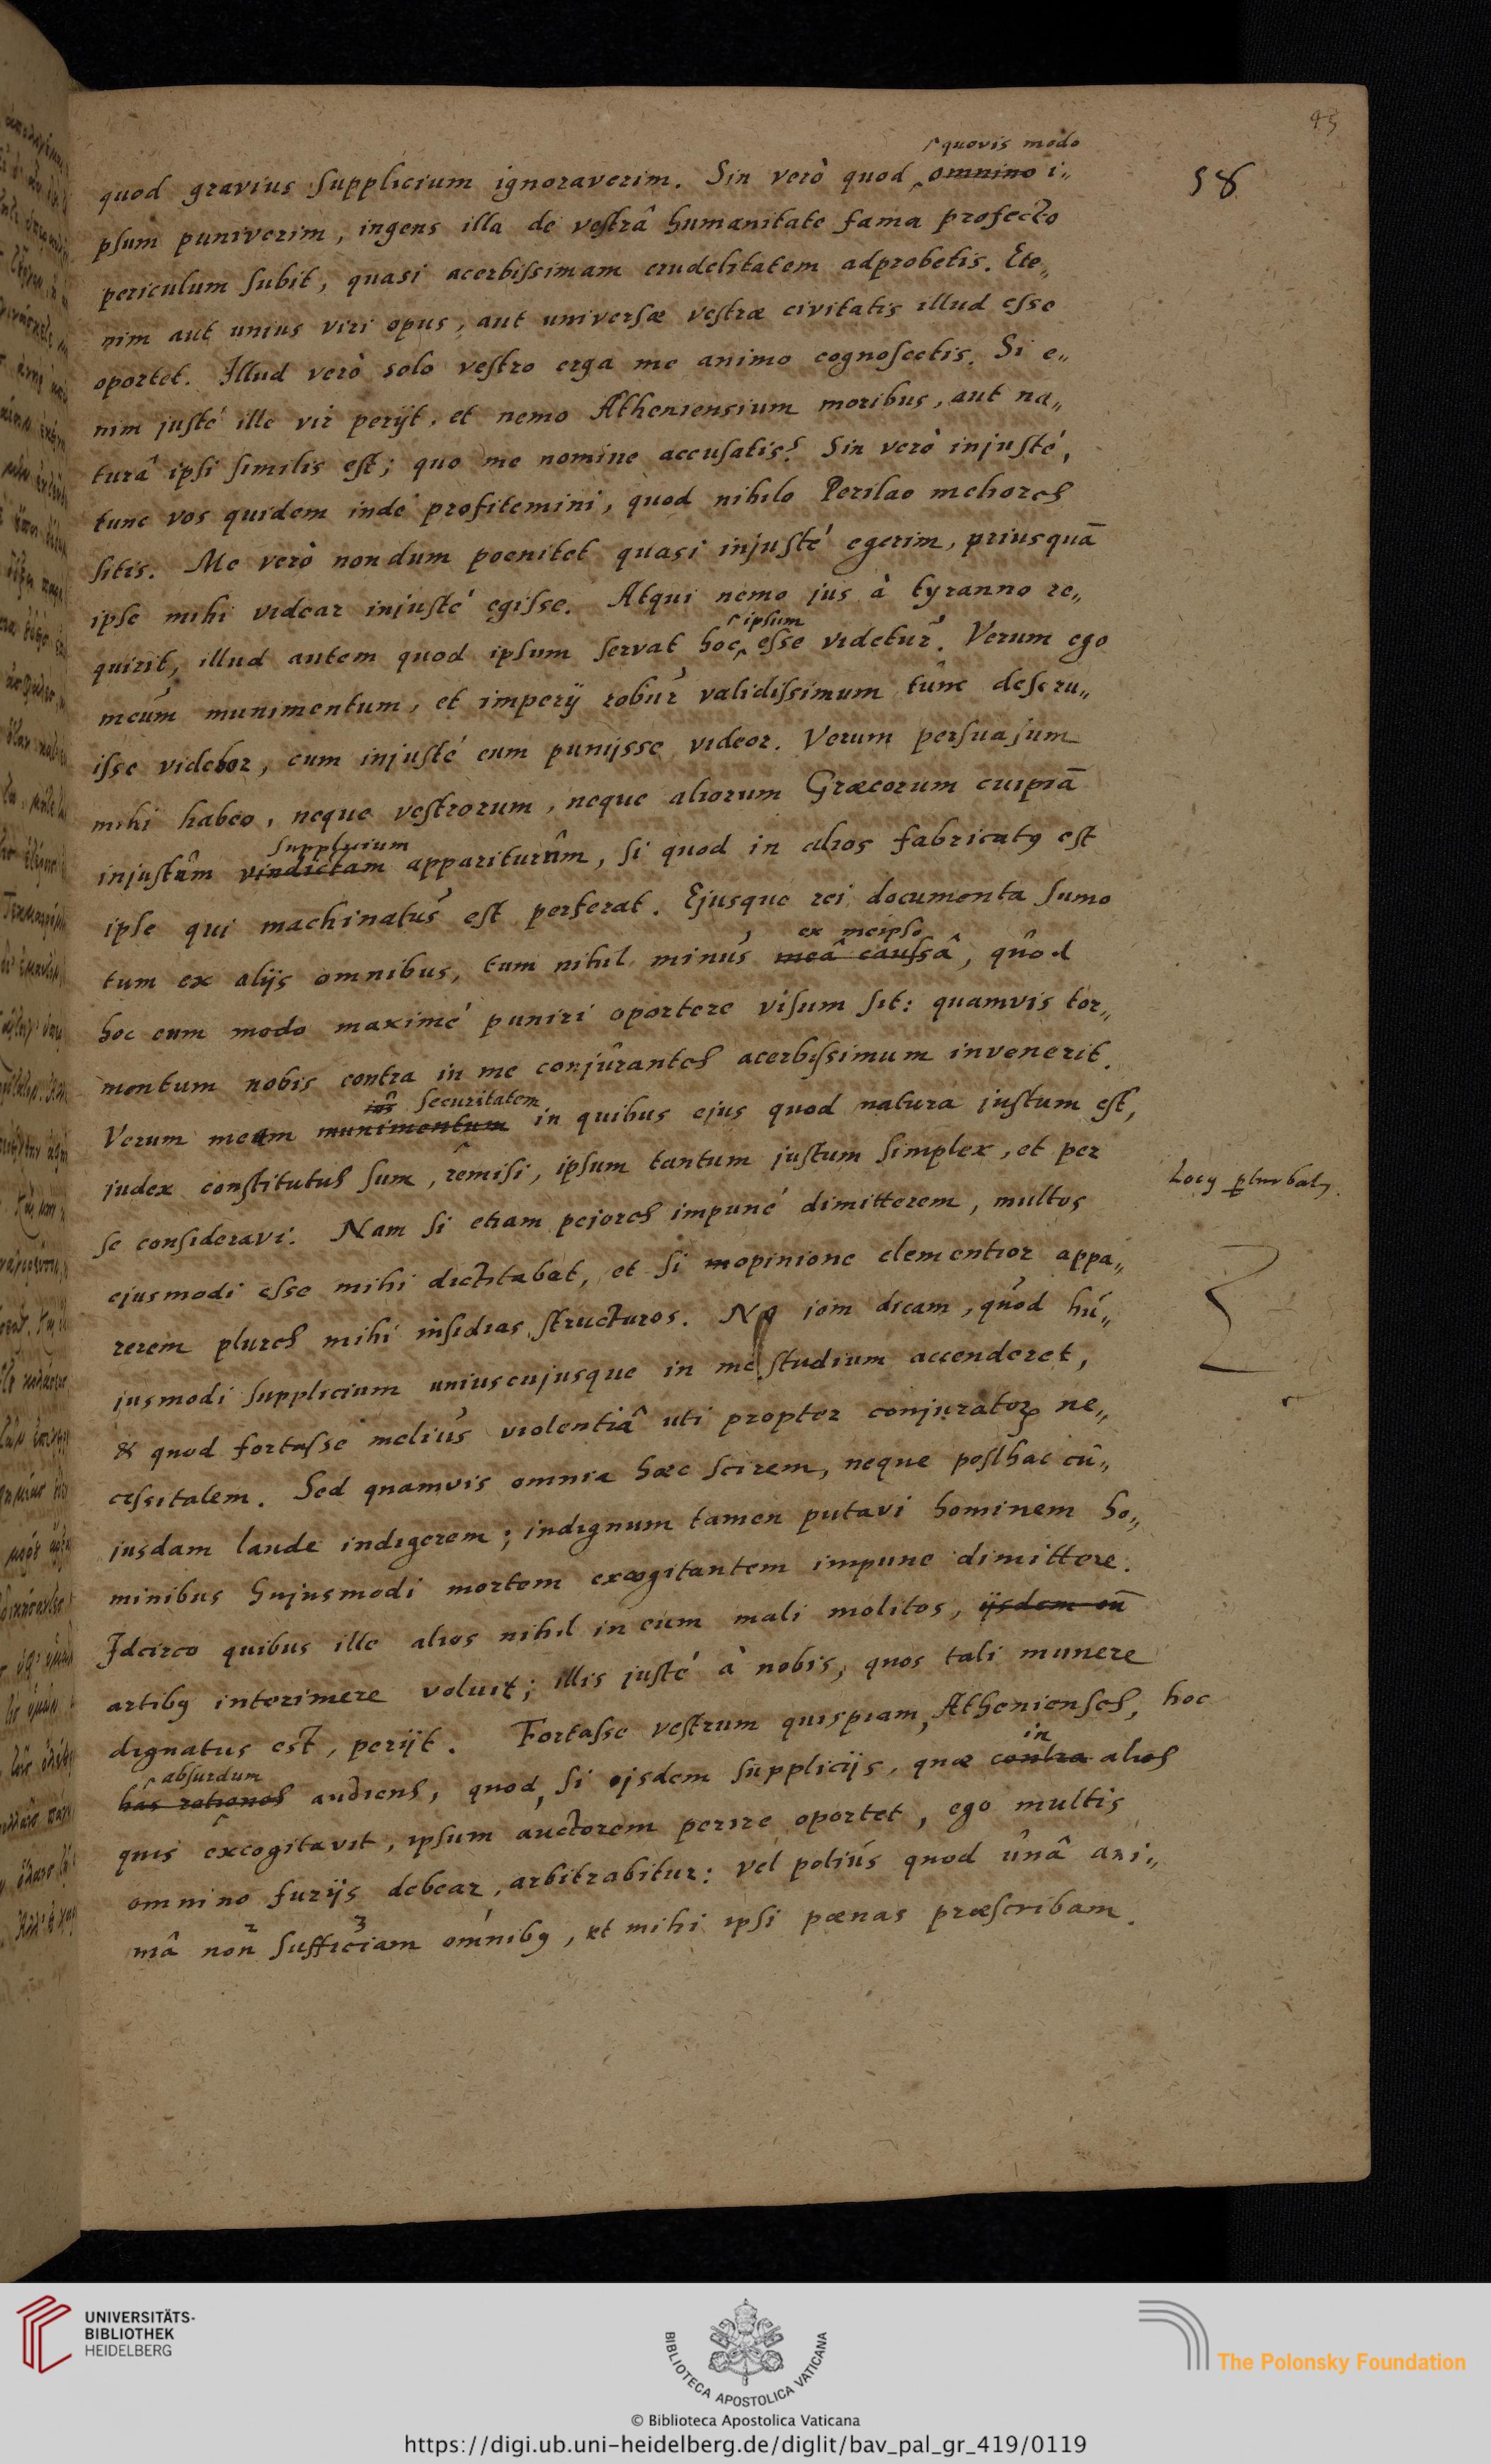 45
58
quovis modo
quod gravius supplicium ignoraverim. Sin verò quod omnino i„
psum puniverim, ingens illa de vestrâ humanitate fama profecto
periculum subit, quasi acerbissimam crudelitatem adprobetis. Ete„
nim aut unius viri opus, aut universæ vestræ civitatis illud esse
oportet. Illud verò solo vestro erga me animo cognoscetis. Si e„
nim justé ille vir perijt, et nemo Atheniensium moribus, aut na„
turâ ipsi similis est; quo me nomine accusatis? Sin verò injusté,
tunc vos quidem inde profitemini, quod nihilo Perilao meliores
sitis. Me verò nondum poenitet quasi injusté egerim, priusquā
ipse mihi videar injusté egisse. Atqui nemo jus à tyranno re„
ipsum
quirit, illud autem quod ipsum servat hoc esse videtur. Verum ego
meum munimentum, et imperij robur validissimum tunc deseru„
isse videbor, cum injusté eum punijsse videor. Verum persuasum
mihi habeo, neque vestrorum, neque aliorum Græcorum cuipiā
supplicium
injustûm vindictam appariturûm, si quod in alios fabricatꝰ est
ipse qui machinatus est perferat. Ejusque rei documenta sumo
ex meipso
tum ex alijs omnibus, tum nihil minus meâ caussâ, quod
hoc eum modo maximé puniri oportere visum sit: quamvis tor„
mentum nobis contra in me conjurantes acerbissimum invenerit.
securitatem
Verum meam munimentum in quibus ejus quod natura justum est,
judex constitutus sum, remisi, ipsum tantum justum simplex, et per
se consideravi. Nam si etiam pejores impuné dimitterem, multos
ejusmodi esse mihi dictitabat, et si opinione clementior appa„
rerem plures mihi insidias structuros. jam dicam, quod hu„
jusmodi supplicium uniuscujusque in me studium accenderet,
& quod fortasse melius violentiâ uti propter conjuratoꝝ ne„
cessitatem. Sed quamvis omnia hæc scirem, neque posthac cu„
jusdam laude indigerem; indignum tamen putavi hominem ho„
minibus hujusmodi mortem excogitantem impune dimittere.
Idcirco quibus ille alios nihil in eum mali molitos, ijsdem eū
artibꝰ interimere voluit; illis justé à nobis, quos tali munere
dignatus est, perijt. Fortasse vestrum quispiam, Athenienses, hoc
absurdum in
has rationes audiens, quod, si ejsdem supplicijs, quæ contra alios
quis excogitavit, ipsum auctorem perire oportet, ego multis
omnino furijs debear, arbitrabitur: vel potiús quod unâ ani„
2 3
mâ non sufficiam omnibꝰ, et mihi ipsi pœnas præscribam.
UNIVERSITÄTS-
BIBLIOTHEK
HEIDELBERG
BIBLIOTECA APOSTOLICA VATICANA
The Polonsky Foundation
© Biblioteca Apostolica Vaticana
https://digi.ub.uni-heidelberg.de/diglit/bav_pal_gr_419/0119